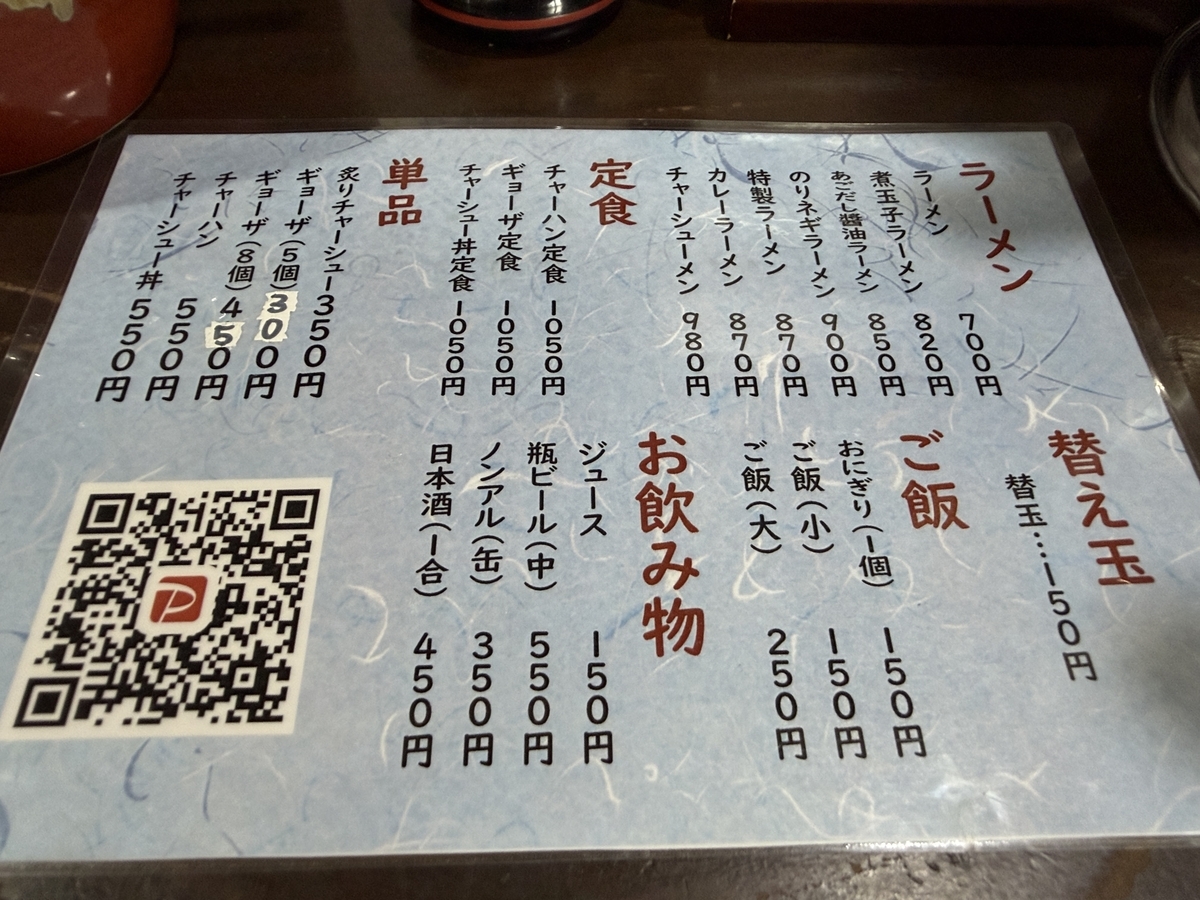 ラーメン
ラーメン 700円
煮玉子ラーメン 820円
あごだし醤油ラーメン 850円
のりネギラーメン 900円
特製ラーメン 870円
カレーラーメン 870円
チャーシューメン 980円
定食
チャーハン定食 1050円
ギョーザ定食 1050円
チャーシュー丼定食 1050円
単品
炙りチャーシュー 350円
ギョーザ(5個) 300円
ギョーザ(8個) 450円
チャーハン 550円
チャーシュー丼 550円
替え玉
替玉…150円
ご飯
おにぎり(1個) 150円
ご飯(小) 150円
ご飯(大) 250円
お飲み物
ジュース 150円
瓶ビール(中) 550円
ノンアル(缶) 350円
日本酒(一合) 450円